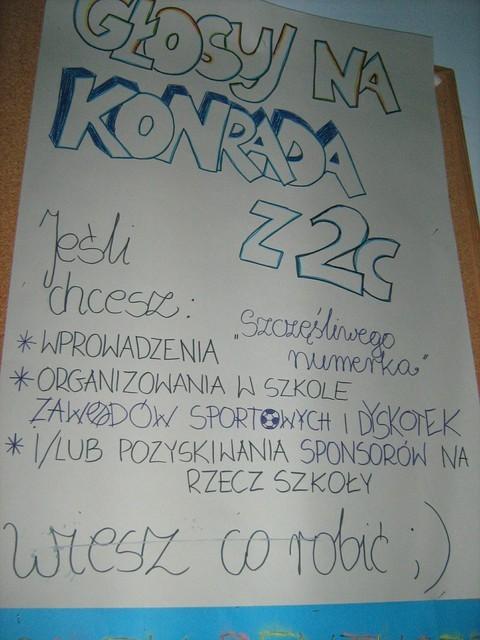 GŁOSUJ NA
KONRADA
Z 2C
Jeśli
chcesz:
* WPROWADZENIA „Szczęśliwego
numerka"
* ORGANIZOWANIA W SZKOLE
ZAWODÓW SPORTOWYCH I DYSKOTEK
* I/LUB POZYSKIWANIA SPONSORÓW NA
RZECZ SZKOŁY
wiesz co robić ;)